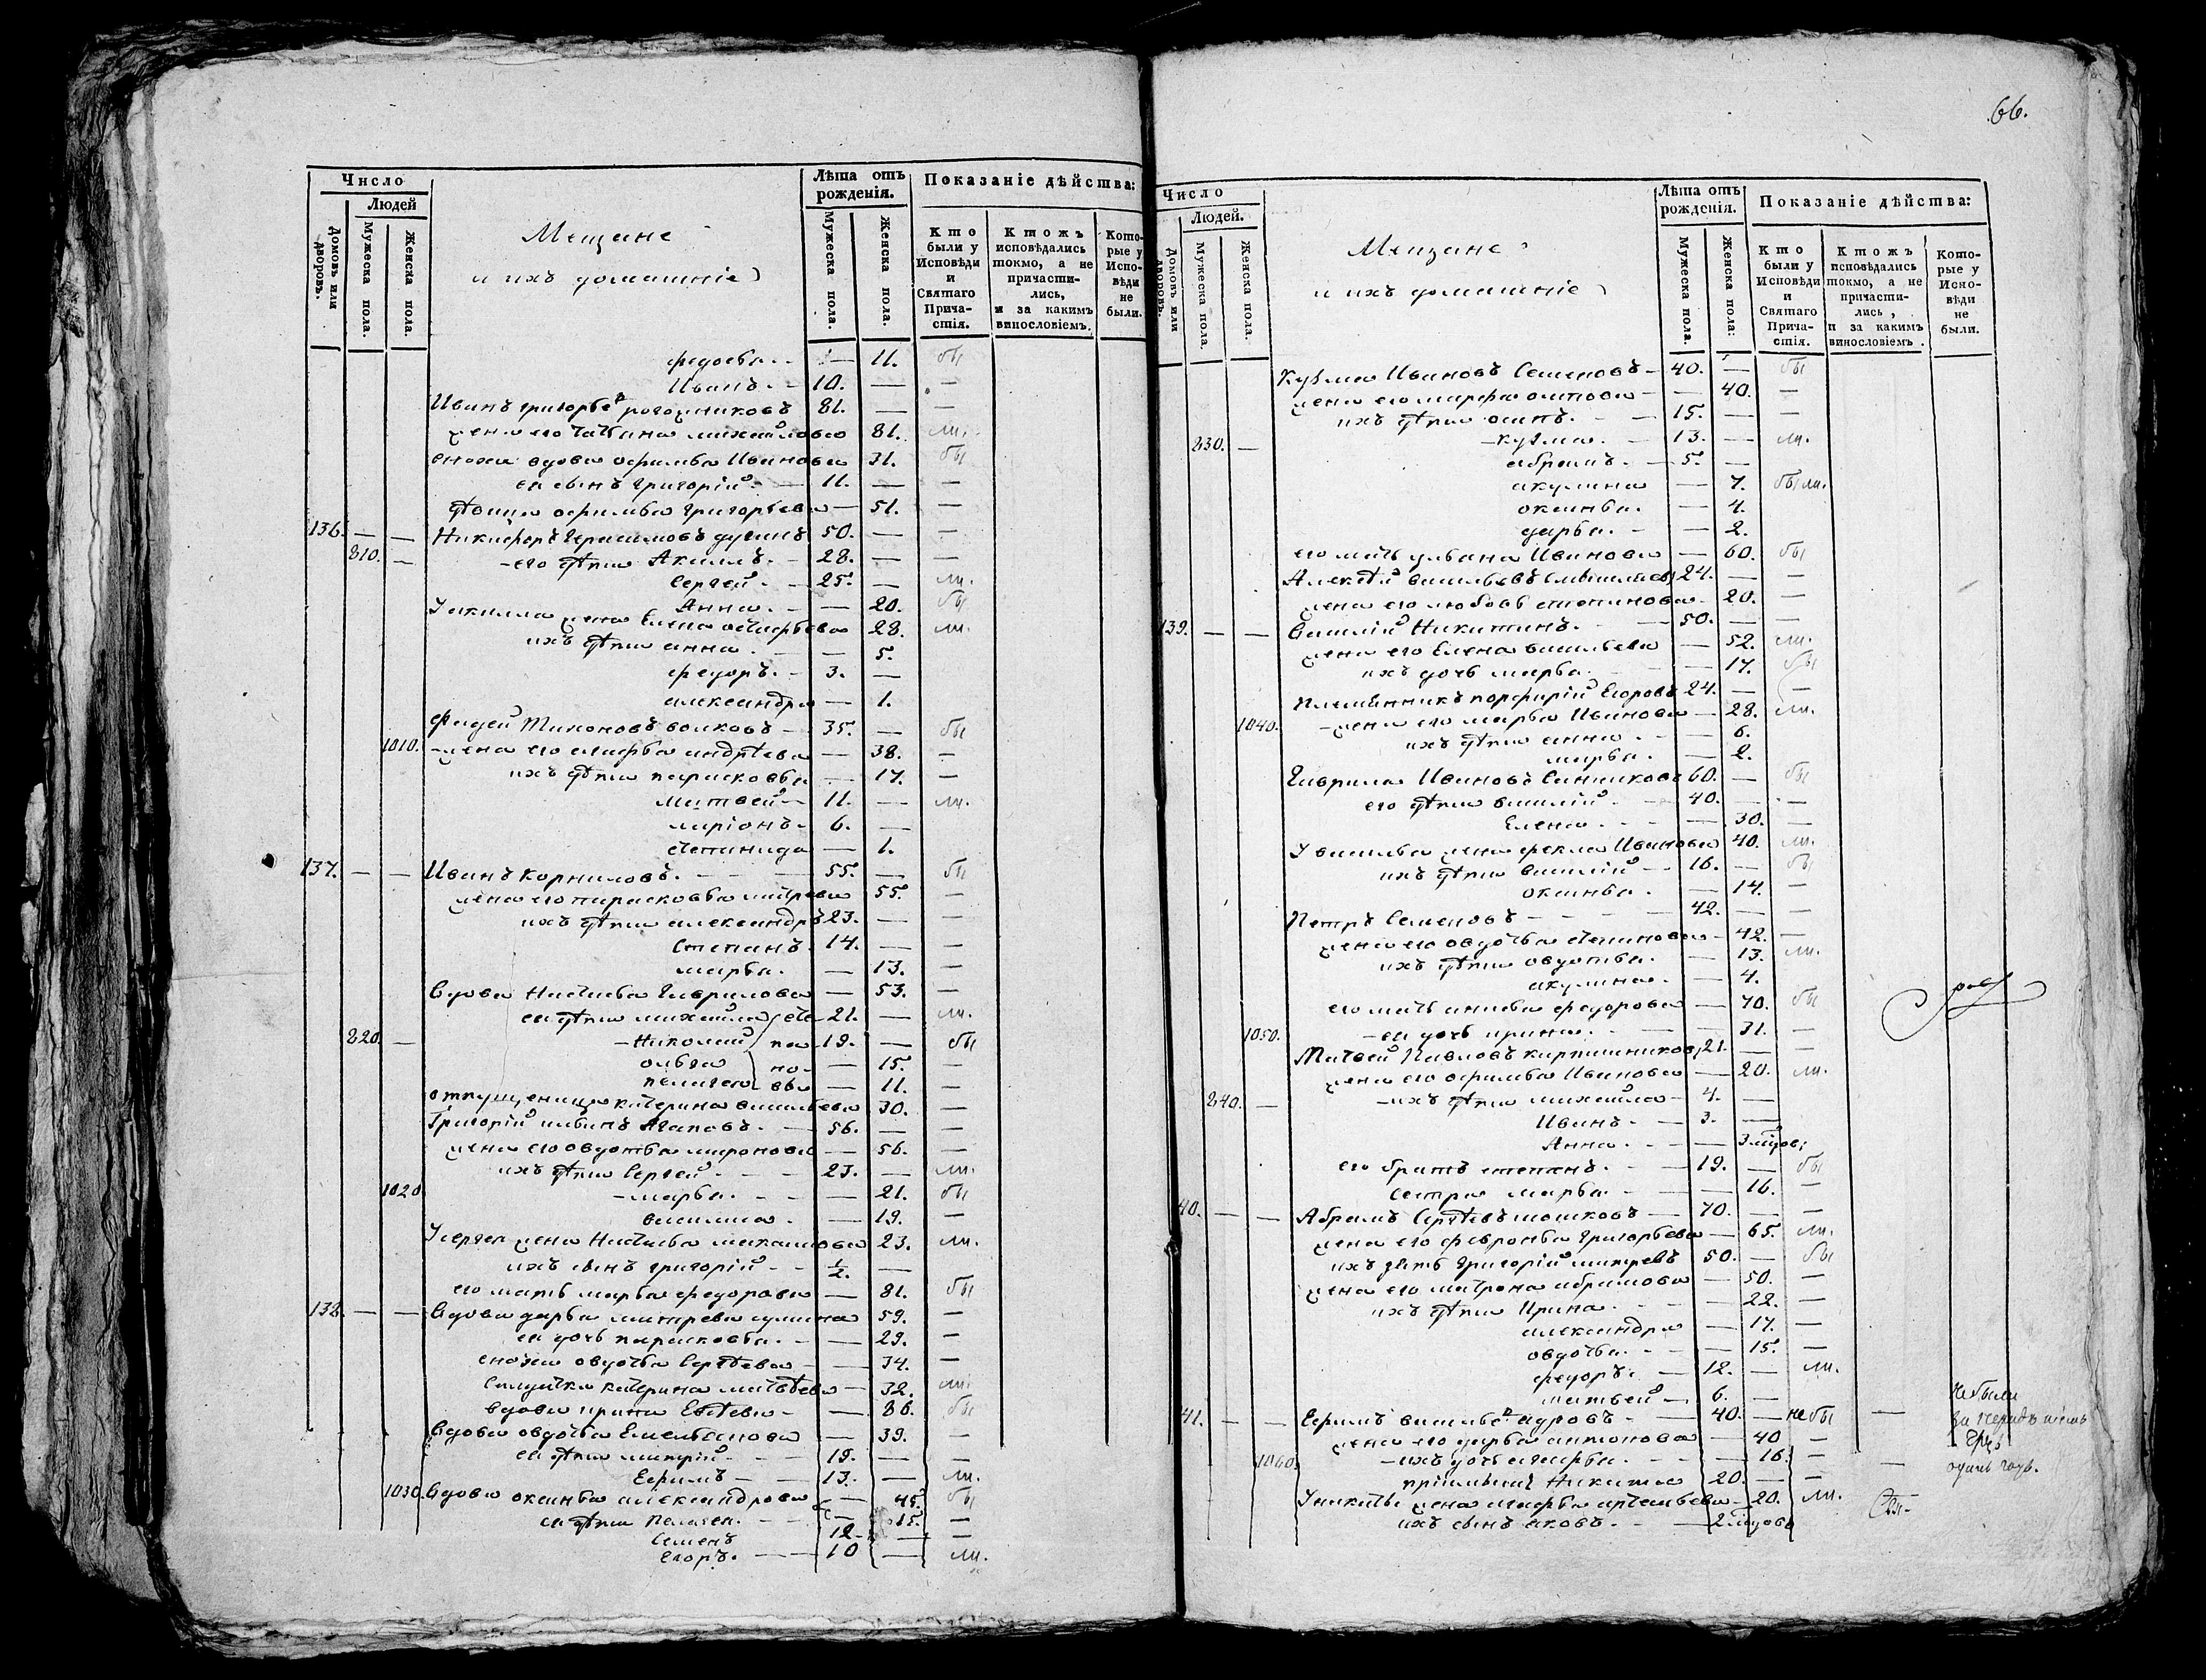 Число
Людей
Домовъ или дворовъ.
Мужеска пола.
Женска пола.
Мещане
и ихъ домашніе
Лѣта отъ рожденія.
Мужеска пола.
Женска пола.
Показаніе дѣйства:
Кто были у Исповѣди и Святаго Причастія.
Ктожъ исповѣдались токмо, а не причастились, и за какимъ винословіемъ.
Которые у Исповѣди не были.
федосья - - — 11. бы
Иванъ - - 10. — —
Иванъ григорьевъ рогожниковъ 81. — —
жена его татьяна михайлова 81. ли.
сноха вдова офимья Иванова 31. бы
ея сынъ григорій - — 11. — —
офимья григорьева — 51. —
136. — — Никифоръ Герасимовъ 50. — —
810. — - его дѣти Акимъ - - 28. — —
Сергей - - 25. — ли.
Анна - - — 20. бы
жена Елена 28. ли.
ихъ дѣти анна - — 5.
федоръ - - 3. —
александра — 1.
фадей Тихоновъ волковъ - - 35. — бы
1010. - жена его агафья андрѣева — 38. —
ихъ дѣти парасковья — 17. —
матвей - 11. — ли.
ларіонъ - 6. —
— 1.
137. — — Иванъ Корниловъ - - — 55. — бы
жена его парасковья 55. —
ихъ дѣти александръ 23. — —
Степанъ - 14. — —
марья - — 13. —
Вдова Настасья Гаврилова — 53. —
ея дѣти михайла 21. — ли.
820. — - Николай 19. — бы
ольга — 15. —
пелагея — 11. —
катерина васильева 30. —
Григорій Агаповъ - — 56. — —
жена его овдотья миронова — 56. —
ихъ дѣти Сергей - - - 23. — ли.
1020 - марья - - — 21. бы
василиса - — 19. —
У сергея жена Настасья 23. ли.
ихъ сынъ григорій - - 1/2. —
его мать марья федорова — 81. бы
138. — — Вдова дарья 59. —
ея дочь парасковья - — 29. —
сноха овдотья Сергѣева - — 34. —
Солдатка катерина матвѣева — 32. ли.
вдова - — 86. бы
Вдова овдотья Емельянова — 39. —
ея дѣти - - - 19. — —
Ефимъ - — 13. — ли.
1030. Вдова оксинья александрова — 45. бы
ея дѣти пелагея - - - — 15. —
Семенъ 12 — —
Егоръ - — — 10 — ли.
66.
Число
Людей.
Домовъ или дворовъ.
Мужеска пола.
Женска пола.
Мещане
и ихъ домашніе
Лѣта отъ рожденія.
Мужеска пола.
Женска пола:
Показаніе дѣйства:
Кто были у Исповѣди и Святаго Причастія.
Ктожъ исповѣдались токмо, а не причастились, и за какимъ винословіемъ.
Которые у Исповѣди не были.
Кузма Ивановъ Семеновъ - 40. — бы
жена его марфа — 40. —
ихъ дѣти осипъ - - — 15. — —
830. — - кузма - — 13. — ли.
абрамъ - — 5. —
акулина — 7. бы ли.
оксинья - — 4.
дарья - — 2.
его мать ульяна Иванова — 60. бы
Алексѣй васильевъ 24. — —
жена его любовь - 20. —
139. — — Василій Никитинъ - — 50. — —
жена его Елена васильева — 52. ли.
ихъ дочь марья - - — 17. бы
племянникъ порфирій Егоровъ 24. — —
1040. - жена его марья Иванова — 28. ли.
ихъ дѣти анна - - — 6.
марья - — 2.
Гаврила Ивановъ 60. — бы
его дѣти василій - — 40. — —
Елена - - — 30. —
У василья жена фекла Иванова 40. ли.
ихъ дѣти василій - - 16. — бы
оксинья - — 14. —
Петръ Семеновъ - - - — 42. — —
жена его овдотья - 42. —
ихъ дѣти овдотья - — 13. ли.
акулина - — 4.
его мать федорова — 70. бы
1050. - ея дочь ирина - - — 31. —
Матвей Павловъ кирпишников 21. — —
жена его офимья Иванова — 20. ли.
840. — - ихъ дѣти михайла - 4. —
Иванъ - — 3. —
Анна - - - — 3 мѣсецов:
его братъ степанъ - — 19. — бы
сестра марья - — 16. —
40. — — Абрамъ Сергѣевъ - 70. — —
жена его февронья Григорьева — 65. ли.
ихъ зять Григорій 50. — бы
жена его матрона абрамова — 50. —
ихъ дѣти Ирина - - - — 22. —
александра — 17. —
овдотья - - — 15. —
федоръ - — 12. — ли.
матвей — 6. —
41. — — Ефимъ васильевъ - — 40. — не бы —
жена его дарья антонова — 40 —
1060. - ихъ дочь - - — 16. — —
Никита 20. — —
У никиты жена агафья - 20. ли.
ихъ сынъ яковъ - - — 2 мѣсецовъ
не были